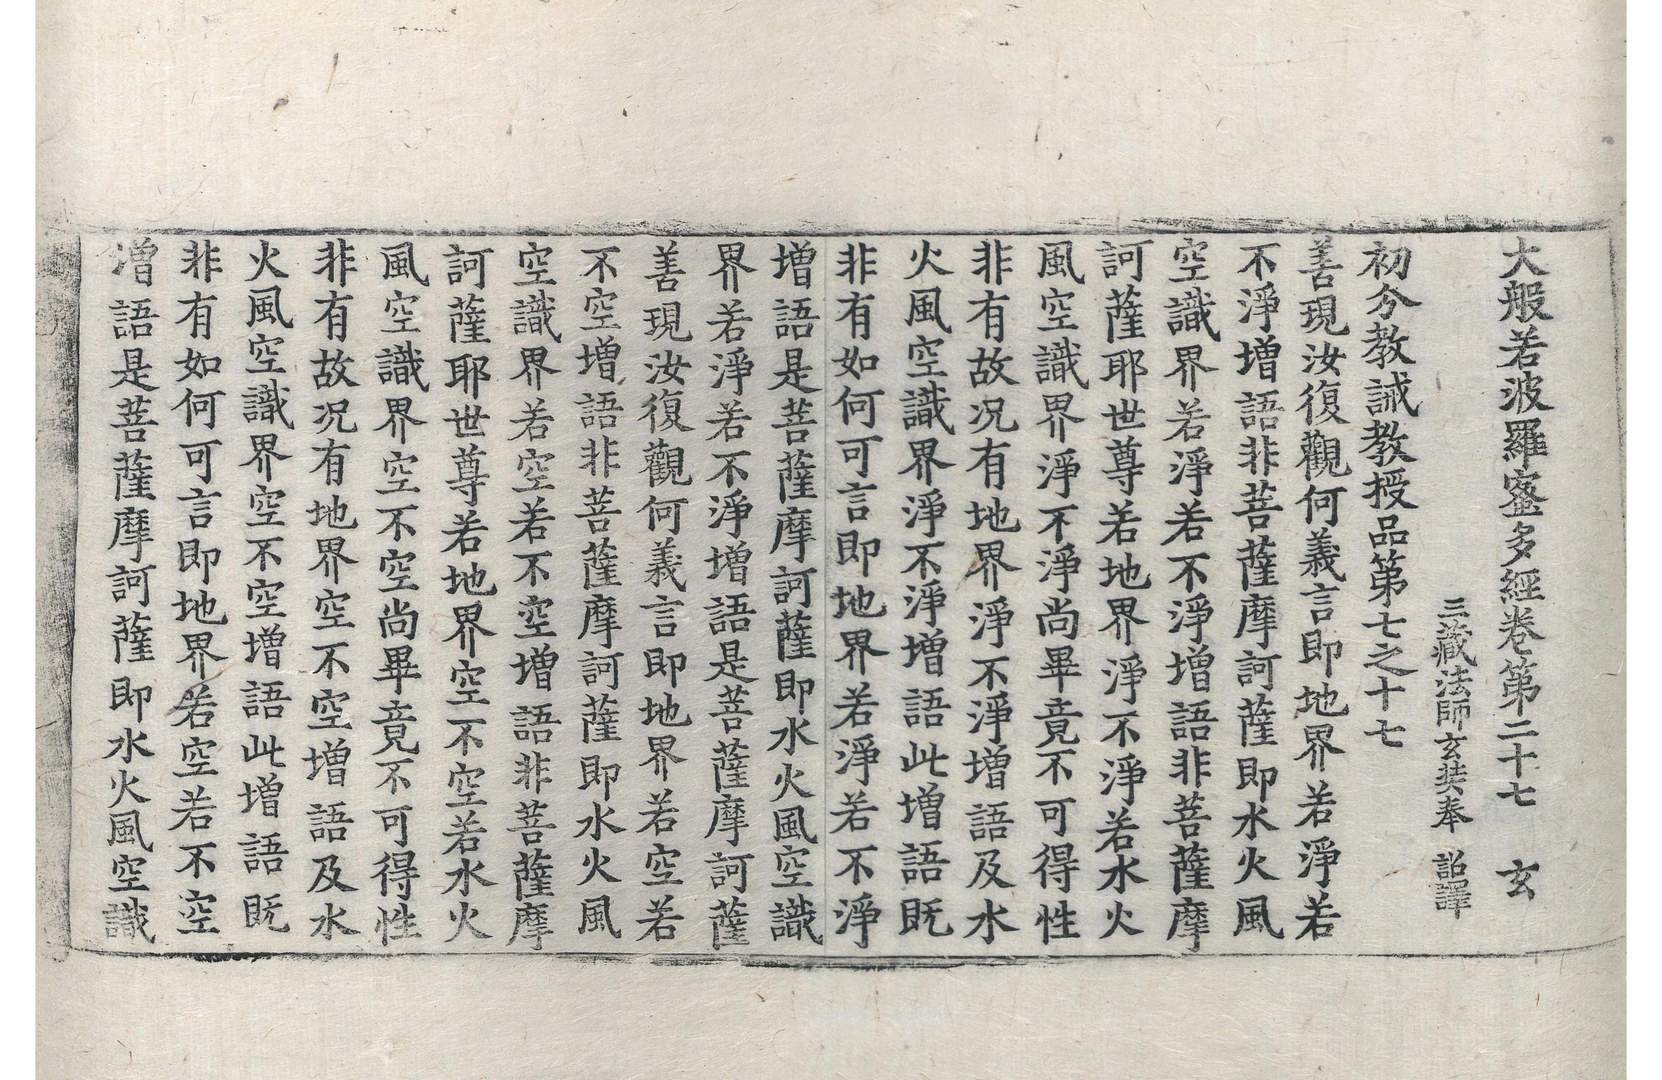 大般若波羅蜜多經卷第二十七 玄
三藏法師玄奘奉 詔譯
初分教誡教授品第七之十七
善現汝復觀何義言即地界若淨若
不淨增語非菩薩摩訶薩即水火風
空識界若淨若不淨增語非菩薩摩
訶薩耶世尊若地界淨不淨若水火
風空識界淨不淨尚畢竟不可得性
非有故况有地界淨不淨增語及水
火風空識界淨不淨增語此增語既
非有如何可言即地界若淨若不淨
增語是菩薩摩訶薩即水火風空識
界若淨若不淨增語是菩薩摩訶薩
善現汝復觀何義言即地界若空若
不空增語非菩薩摩訶薩即水火風
空識界若空若不空增語非菩薩摩
訶薩耶世尊若地界空不空若水火
風空識界空不空尚畢竟不可得性
非有故况有地界空不空增語及水
火風空識界空不空增語此增語既
非有如何可言即地界若空若不空
增語是菩薩摩訶薩即水火風空識